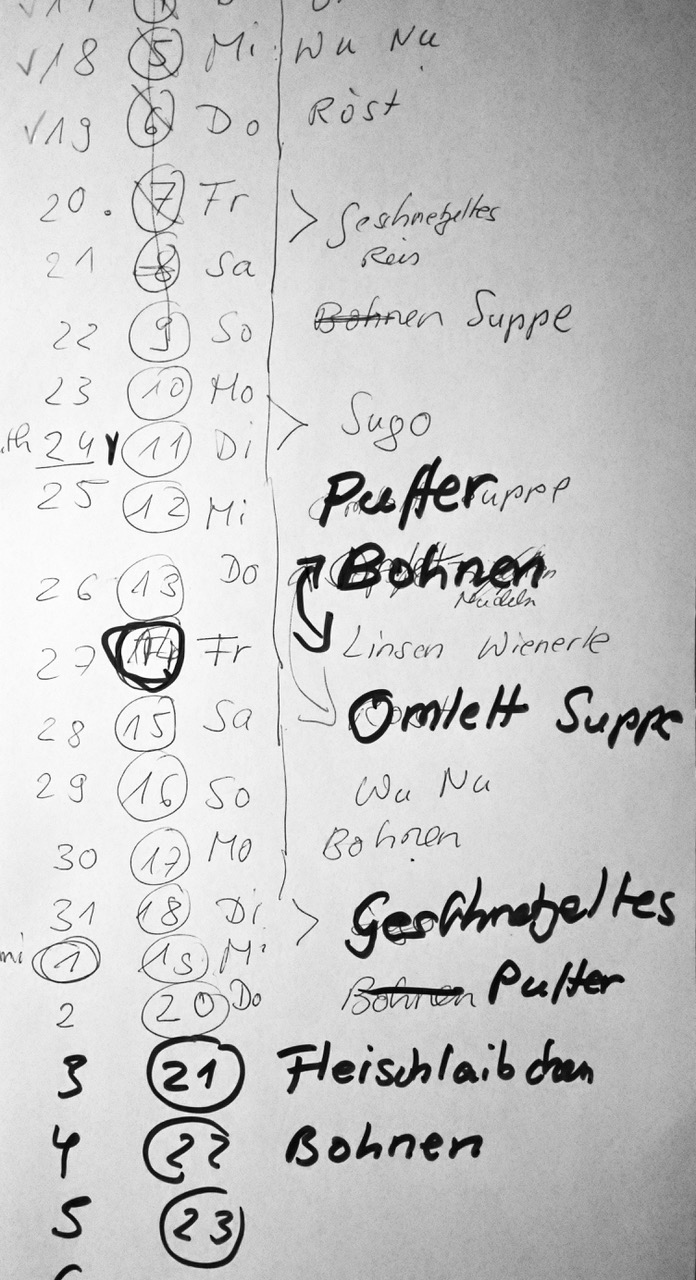 √18 5 Mi Wu Nu
√19 6 Do Röst
20. 7 Fr Geschnetzeltes
Reis
21 8 Sa
22 9 So Bohnen Suppe
23 10 Mo
Sugo
24 11 Di
25 12 Mi Puffer Suppe
26 13 Do Bohnen
Nudeln
27 14 Fr Linsen Wienerle
28 15 Sa Omlett Suppe
29 16 So Wu Nu
30 17 Mo Bohnen
31 18 Di Geschnetzeltes
1 19 Mi
2 20 Do Bohnen Puffer
3 21 Fleischlaibchen
4 22 Bohnen
5 23